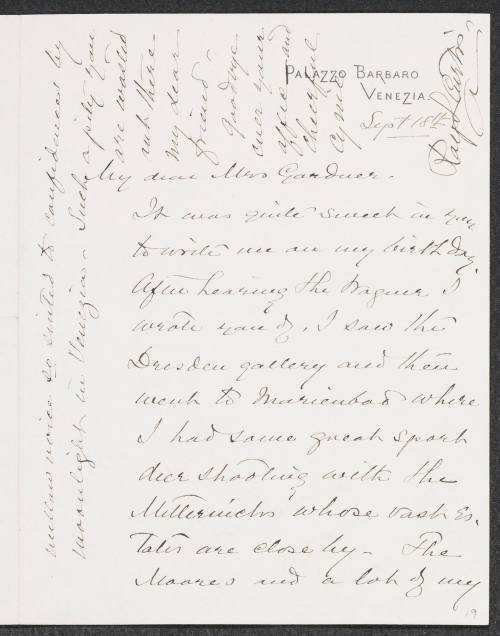 PALAZZO BARBARO
VENEZIA.
Sept 18th
My dear Mrs Gardner.
It was quite sweet in you
to write me on my birthday.
After hearing the Wagner I
wrote you of, I saw the
Dresden gallery and then
went to Marienbad where
I had some great sport
deer shooting with the
Metternichs whose vast Es-
tates are close by. The
Moores and a lot of my
mellow voice so suited to confidences by
moonlight in Venezia. Such a pity you
are wasted
out there
my dear
friend
Goodbye
ever your
affec and
cheerful
cynic
Ralph Curtis
19